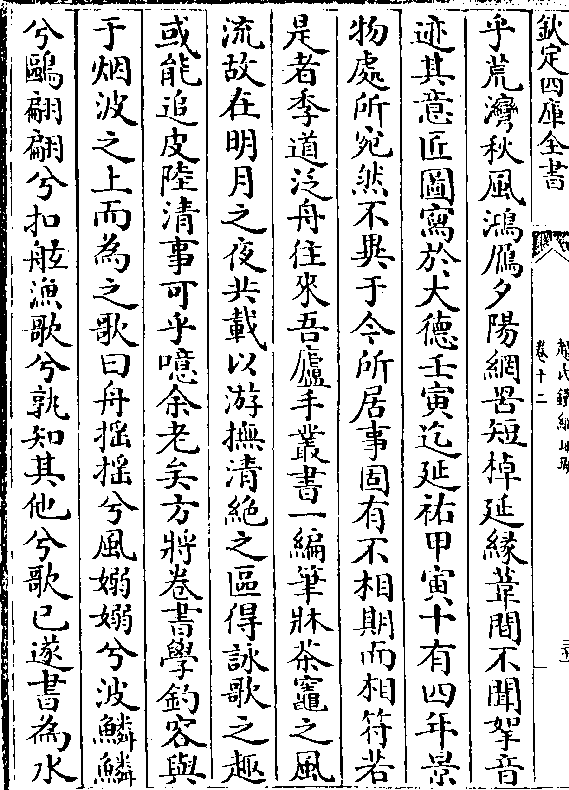 欽定四庫全書
趙氏鐵網珊瑚
卷十二
乎荒灣秋風鴻鴈夕陽網罟短棹延緣葦間不聞拏音
迹其意匠圖寫於大德壬寅迄延祐甲寅十有四年景
物處所宛然不異于今所居事固有不相期而相符若
是者季道泛舟往來吾廬手叢書一編筆牀茶竈之風
流故在明月之夜共載以游撫清絶之區得詠歌之趣
或能追皮陸清事可乎噫余老矣方將卷書學釣容與
于烟波之上而為之歌曰舟摇摇兮風嫋嫋兮波鱗鱗
兮鷗翩翩兮扣舷漁歌兮孰知其他兮歌已遂書為水